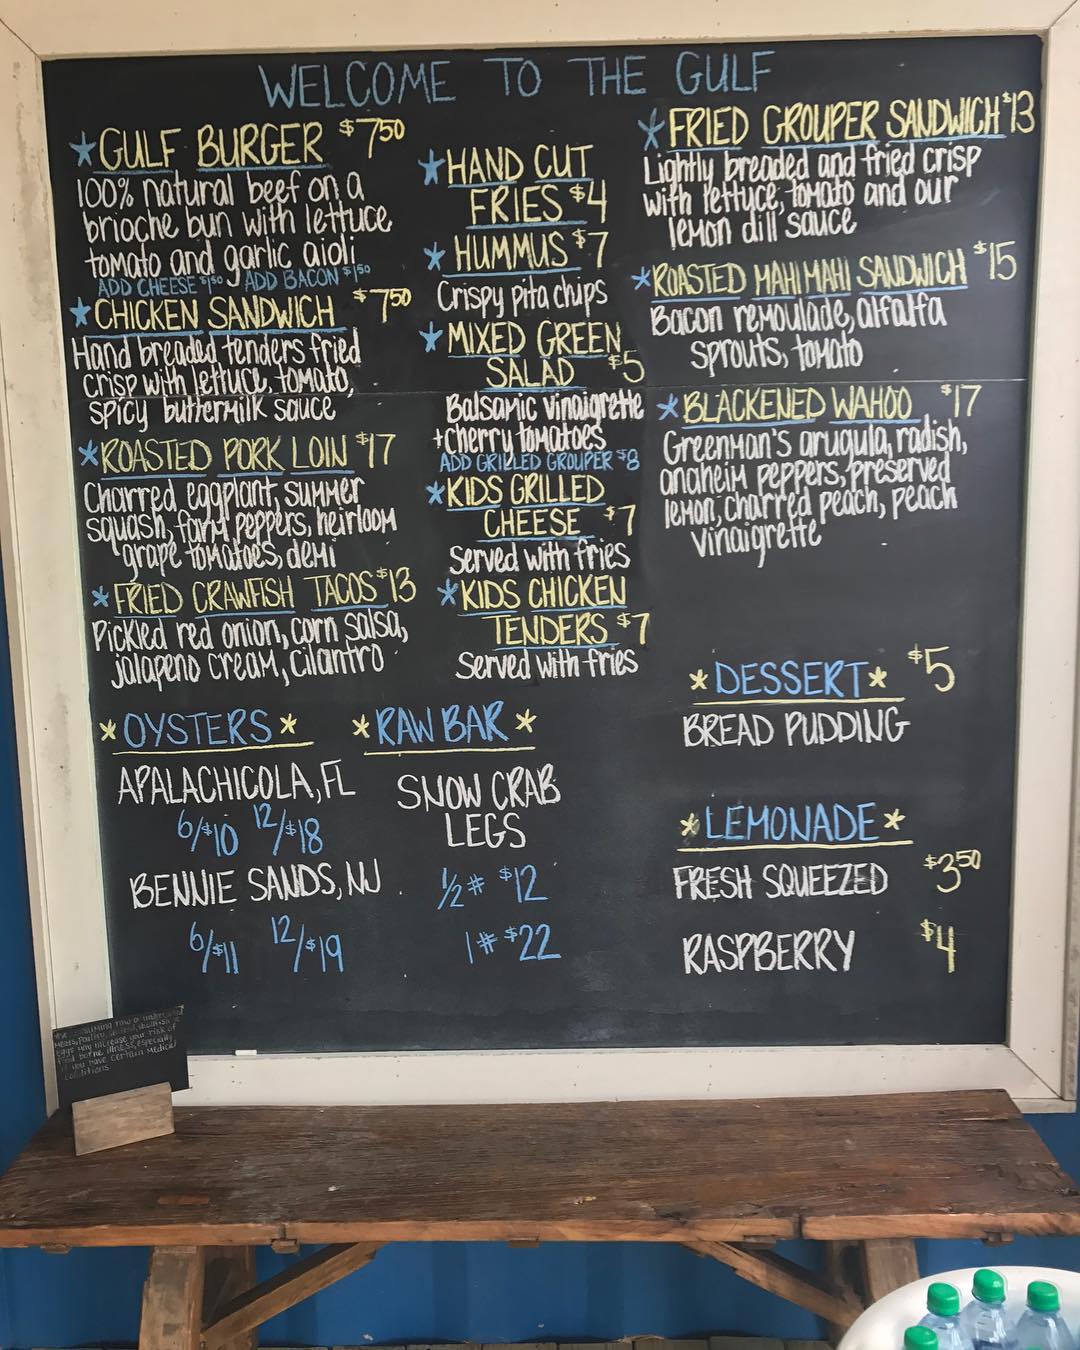 WELCOME TO THE GULF
*GULF BURGER $7.50
100% natural beef on a
brioche bun with lettuce
tomato and garlic aioli
ADD CHEESE $1.50 ADD BACON $1.50
*CHICKEN SANDWICH $7.50
Hand breaded tenders fried
crisp with lettuce, tomato,
spicy buttermilk sauce
*ROASTED PORK LOIN $17
Charred eggplant, summer
squash, farm peppers, heirloom
grape tomatoes, demi
*FRIED CRAWFISH TACOS $13
Pickled red onion, corn salsa,
jalapeno cream, cilantro
*HAND CUT
FRIES $4
*HUMMUS $7
Crispy pita chips
*MIXED GREEN
SALAD $5
Balsamic vinaigrette
+cherry tomatoes
ADD GRILLED GROUPER $8
*KIDS GRILLED
CHEESE $7
Served with fries
*KIDS CHICKEN
TENDERS $7
Served with fries
*FRIED GROUPER SANDWICH $13
Lightly breaded and fried crisp
with lettuce, tomato and our
lemon dill sauce
*ROASTED MAHI MAHI SANDWICH $15
Bacon remoulade, alfalfa
sprouts, tomato
*BLACKENED WAHOO $17
Greenman's arugula, radish,
anaheim peppers, preserved
lemon, charred peach, peach
vinaigrette
*OYSTERS*
APALACHICOLA, FL
6/$10 12/$18
BENNIE SANDS, NJ
6/$11 12/$19
*RAW BAR*
SNOW CRAB
LEGS
1/2# $12
1# $22
*DESSERT* $5
BREAD PUDDING
*LEMONADE*
FRESH SQUEEZED $3.50
RASPBERRY $4
raw or
meats, poultry, shellfish
eggs may increase your risk of
food borne illness, especially
if you have certain medical
conditions